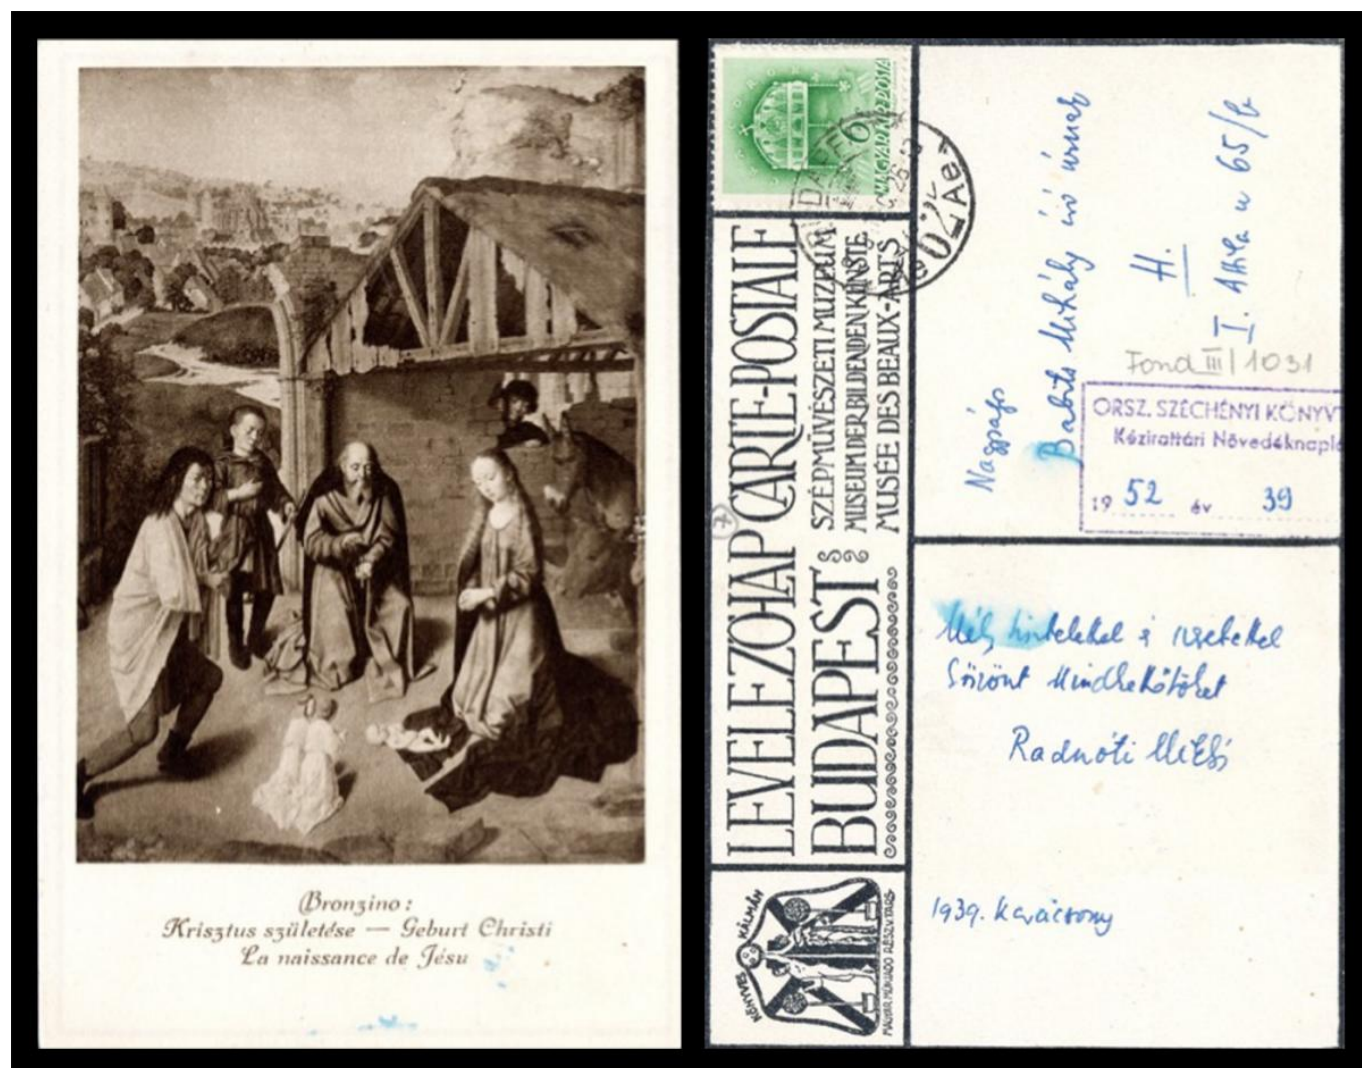 Bronzino:
Krisztus születése — Geburt Christi
La naissance de Jésu
MAGYAR KIR. POSTA
LEVELEZŐLAP CARTE-POSTALE
SZÉPMŰVÉSZETI MUZEUM
MUSEUM DER BILDENDEN KÜNSTE
MUSÉE DES BEAUX-ARTS
BUDAPEST
KÖNYVES KÁLMÁN
MAGYAR MŰKIADÓ RÉSZV.TÁRS.
Nagyságos
Babits Mihály író úrnak
H.
I. Attila u 65/b
Fond III/1031
ORSZ. SZÉCHÉNYI KÖNYVT
Kézirattári Növedéknapló
1952 év 39
Mély tisztelettel és szeretettel
köszönt Mindkettőtöket
Radnóti Miklós
1939. Karácsony